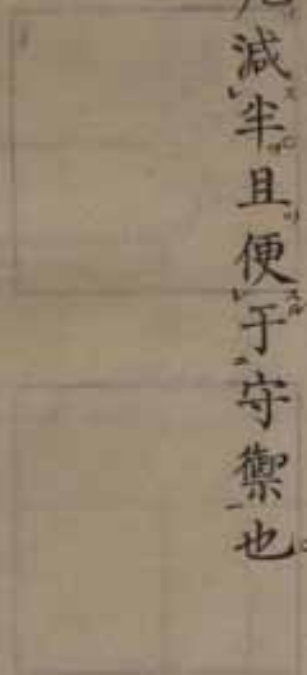 減半且便于守禦也